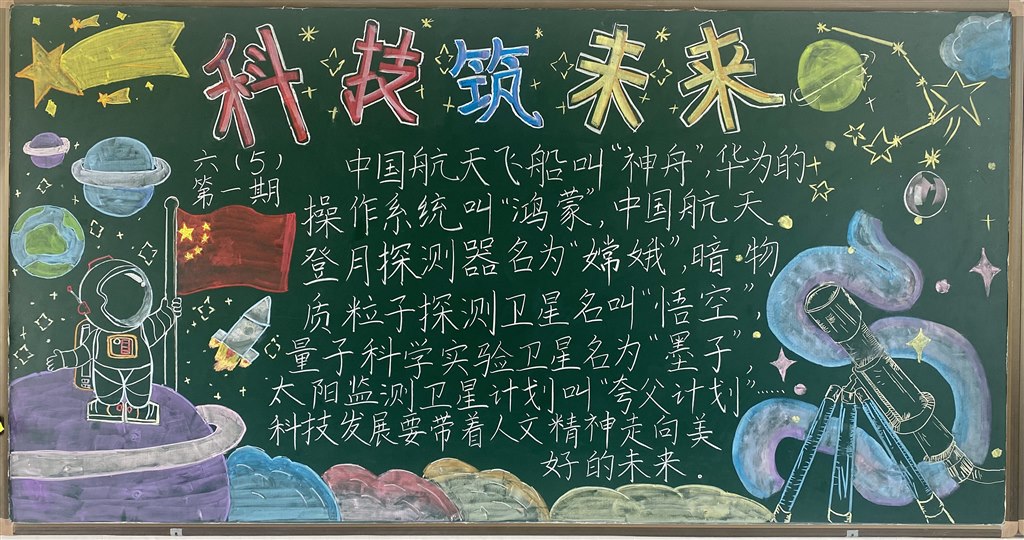 科技筑未来
六(5)
第一期
中国航天飞船叫“神舟”,华为的
操作系统叫“鸿蒙”,中国航天
登月探测器名为“嫦娥”,暗物
质粒子探测卫星名叫“悟空”
量子科学实验卫星名为“墨子”,
太阳监测卫星计划叫“夸父计划”……
科技发展要带着人文精神走向美
好的未来.